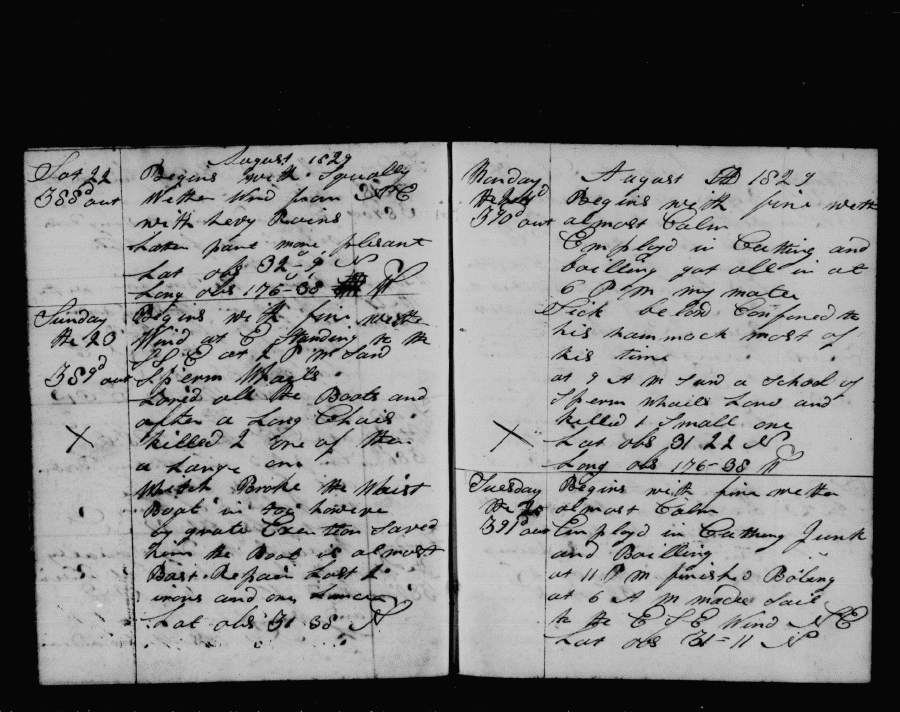 August 1829
Sat 22
388d out
Begins with Squally
Wether Wind from NE
with hevy Rains
Later part more plesant
Lat obs 32 - 9 N
Long obs 176-38 W
Sunday
the 23
389d out
Begins with fine wether
Wind at E Standing to the
S E at 2 P M Saw
Sperm Whails
Lored all the Boats and
after a Long Chais
killed 2 one of them
a Large one
Which Broke the Waist
Boat in too however
by grate Exertion Saved
him the Boat is almost
Past Repair Lost 2
irons and one Lance
Lat obs 31 38 N
August 1829
Monday
390d out
Begins with fine weth
almost Calm
Employd in Cutting and
boilling got all in at
6 P M my mate
Sick belong Confined to
his hammock most of
his time
at 9 A M Saw a School of
Sperm whails Lored and
killed 1 Small one
Lat obs 31 22 N
Long obs 176-38 W
Tuesday
the 25
391d out
Begins with fine wether
almost Calm
Employd in Cutting Junk
and Boilling
at 11 P M finished Boling
at 6 A M made Sail
to the E S E Wind N E
Lat obs 31=11 N